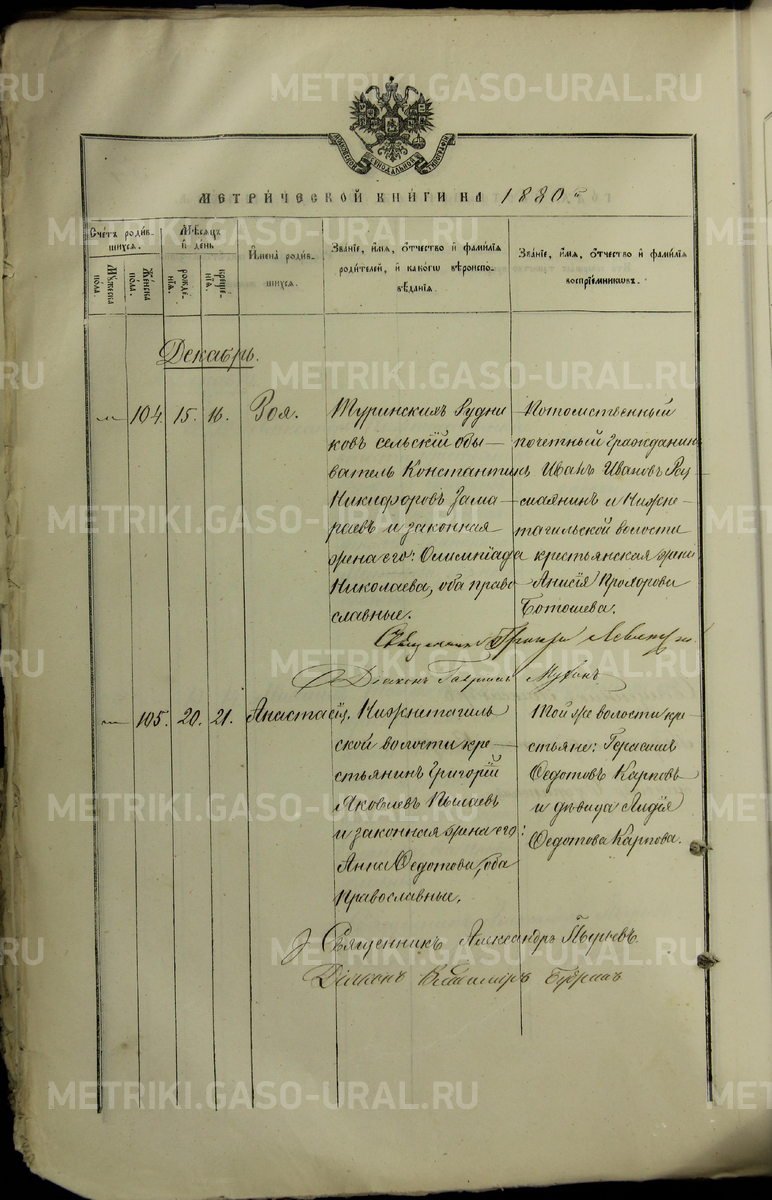 METRIKI.GASO-URAL.RU
МЕТРИ́ЧЕСКОЙ КНИ́ГИ НА 1880 г.
Счетъ роди́в-
шихся.
Му́жеска
пола.
Же́нска
по́ла.
Мѣсяцъ
и день
рожде-
нія.
креще-
нія.
Имена роди́в-
шихся.
Зва́ніе, и́мя, о́тчество и фами́лія
роди́телей, и како́гѡ вѣроиспо-
вѣ́данія.
Зва́ніе, и́мя, о́тчество и фами́лія
воспріе́мниковъ.
Декабрь.
„ 104. 15. 16. Зоя.
Туринскихъ Рудни
ковъ сельскій обы-
ватель Константинъ
Никифоровъ Зама-
раевъ и законная
жена его: Олимпіада
Николаева, оба право
славные.
Потомственный
почетный гражданинъ
Иванъ Ивановъ
и Нижне-
тагильской волости
крестьянская жена
Анисія Прохорова
Ботошева.
Священникъ
Діаконъ Гавріилъ
„ 105. 20. 21. Анастасія.
Нижнетагиль
ской волости кре-
стьянинъ Григорій
Яковлевъ Пылаевъ
и законная жена его:
Анна Ѳедотова, оба
Православные.
Той же волости кре-
стьяне: Герасимъ
Ѳедотовъ Карповъ
и дѣвица Лидія
Ѳедотова Карпова.
Священникъ Александръ
Діаконъ Владиміръ